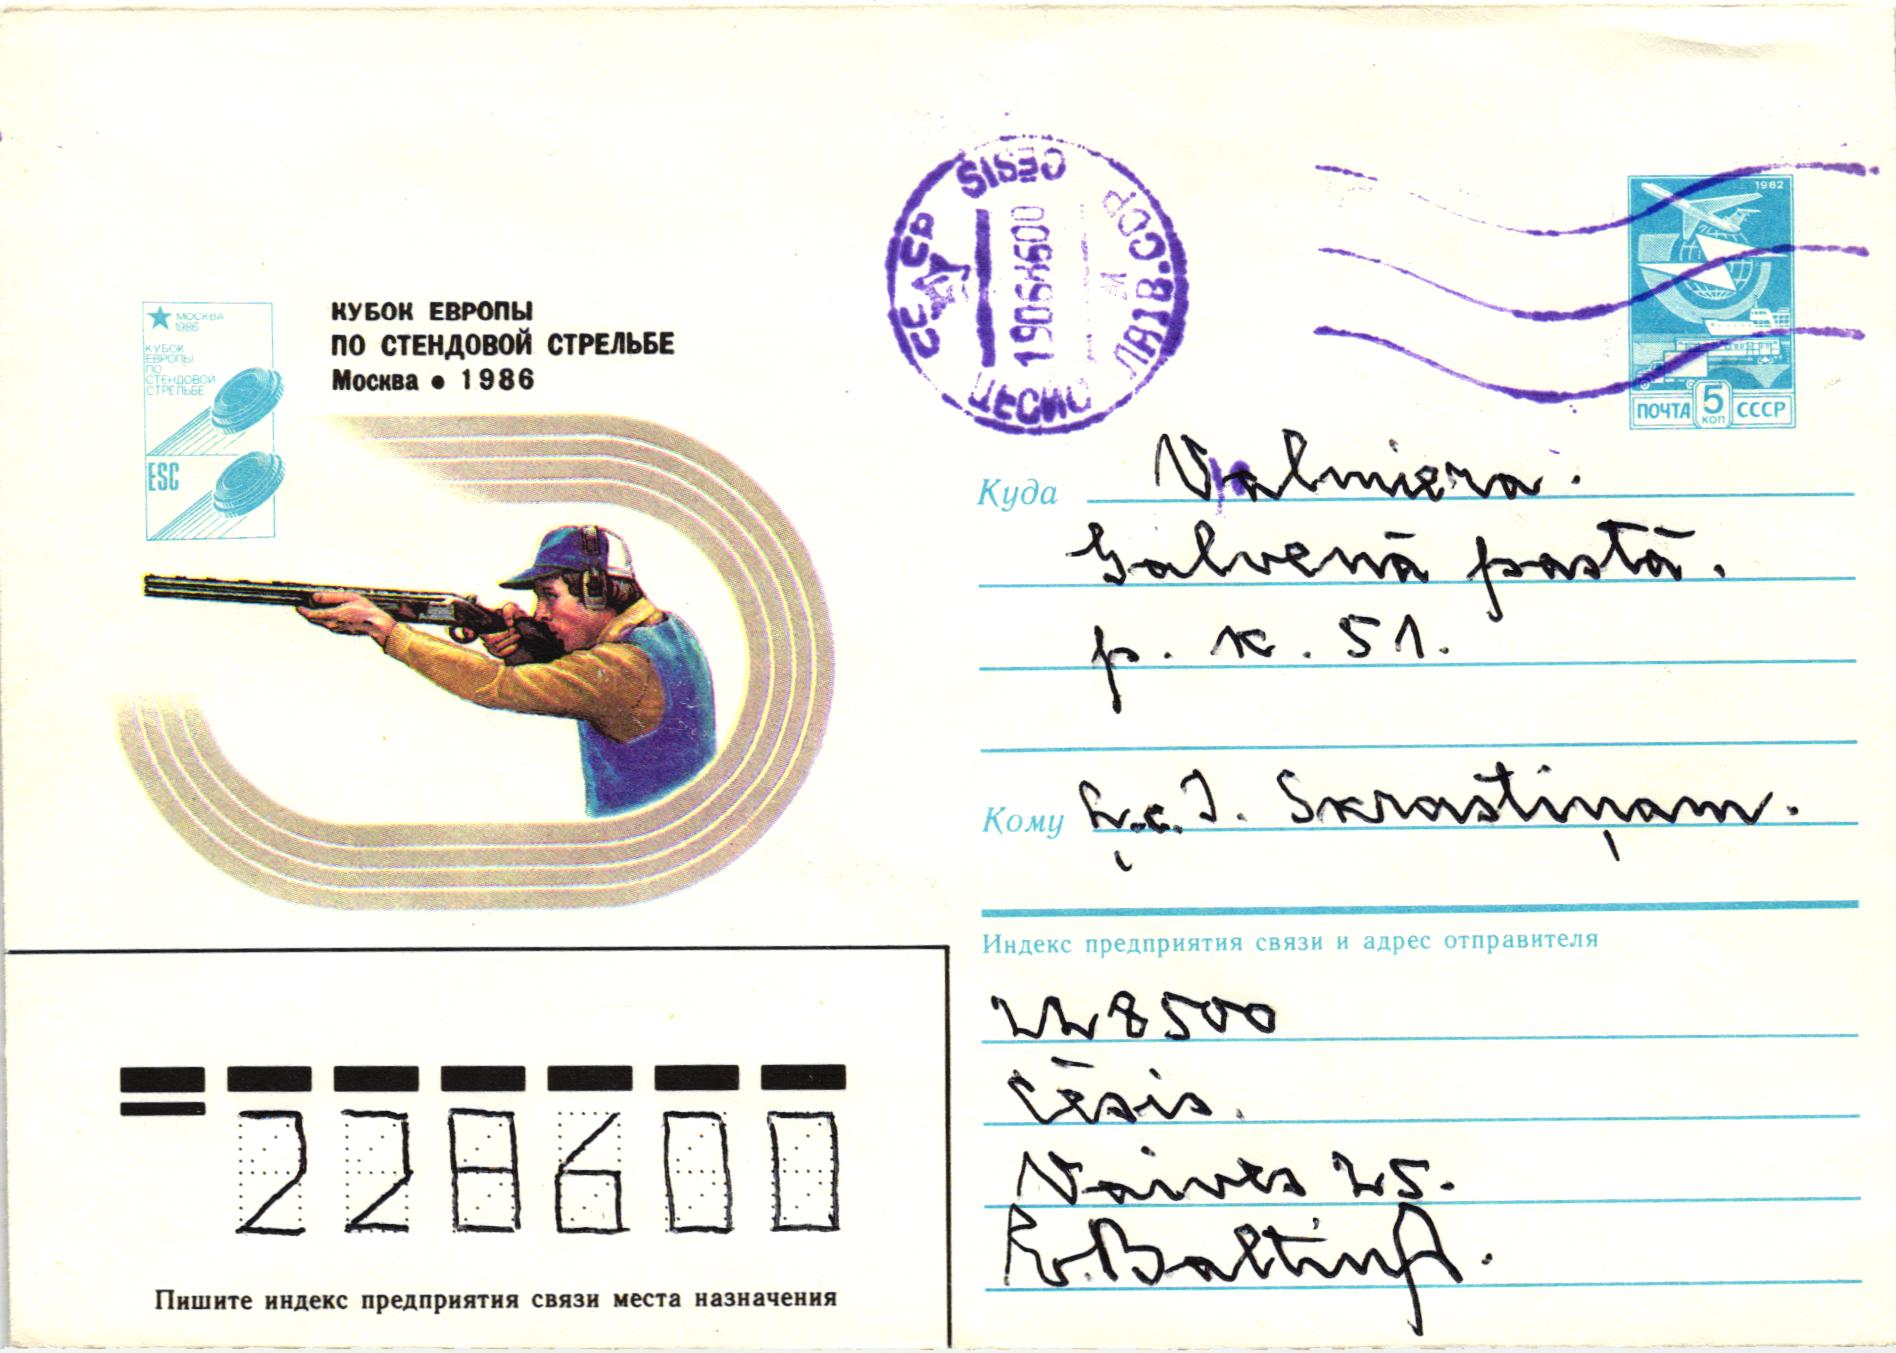 МОСКВА
1986
КУБОК
ЕВРОПЫ
ПО
СТЕНДОВОЙ
СТРЕЛЬБЕ
ESC
КУБОК ЕВРОПЫ
ПО СТЕНДОВОЙ СТРЕЛЬБЕ
Москва • 1986
CĒSIS
СССР
ЦЕСИС ЛАТВ.ССР
1982
ПОЧТА 5 КОП СССР
Куда Valmiera.
Galvenā pastā.
p. k. 51.
Кому J. Skrastiņam.
Индекс предприятия связи и адрес отправителя
228500
Cēsis.
Naives 25.
Baltiņš.
228600
Пишите индекс предприятия связи места назначения